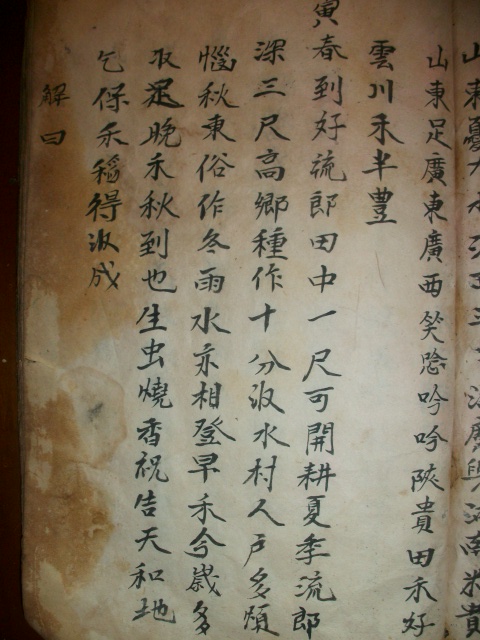 山東憂
山東足廣東廣西笑唸吟吟陝貴田禾好
雲川禾半豊
寅春到好琉郎田中一尺可開耕夏季流郎
深三尺高鄉種作十分收水村人戶多煩
惱秋東俗作冬雨水亦相登早禾今歲多
取足晚禾秋到也生虫燒香祝告天和地
乞保禾稻得收成
解曰